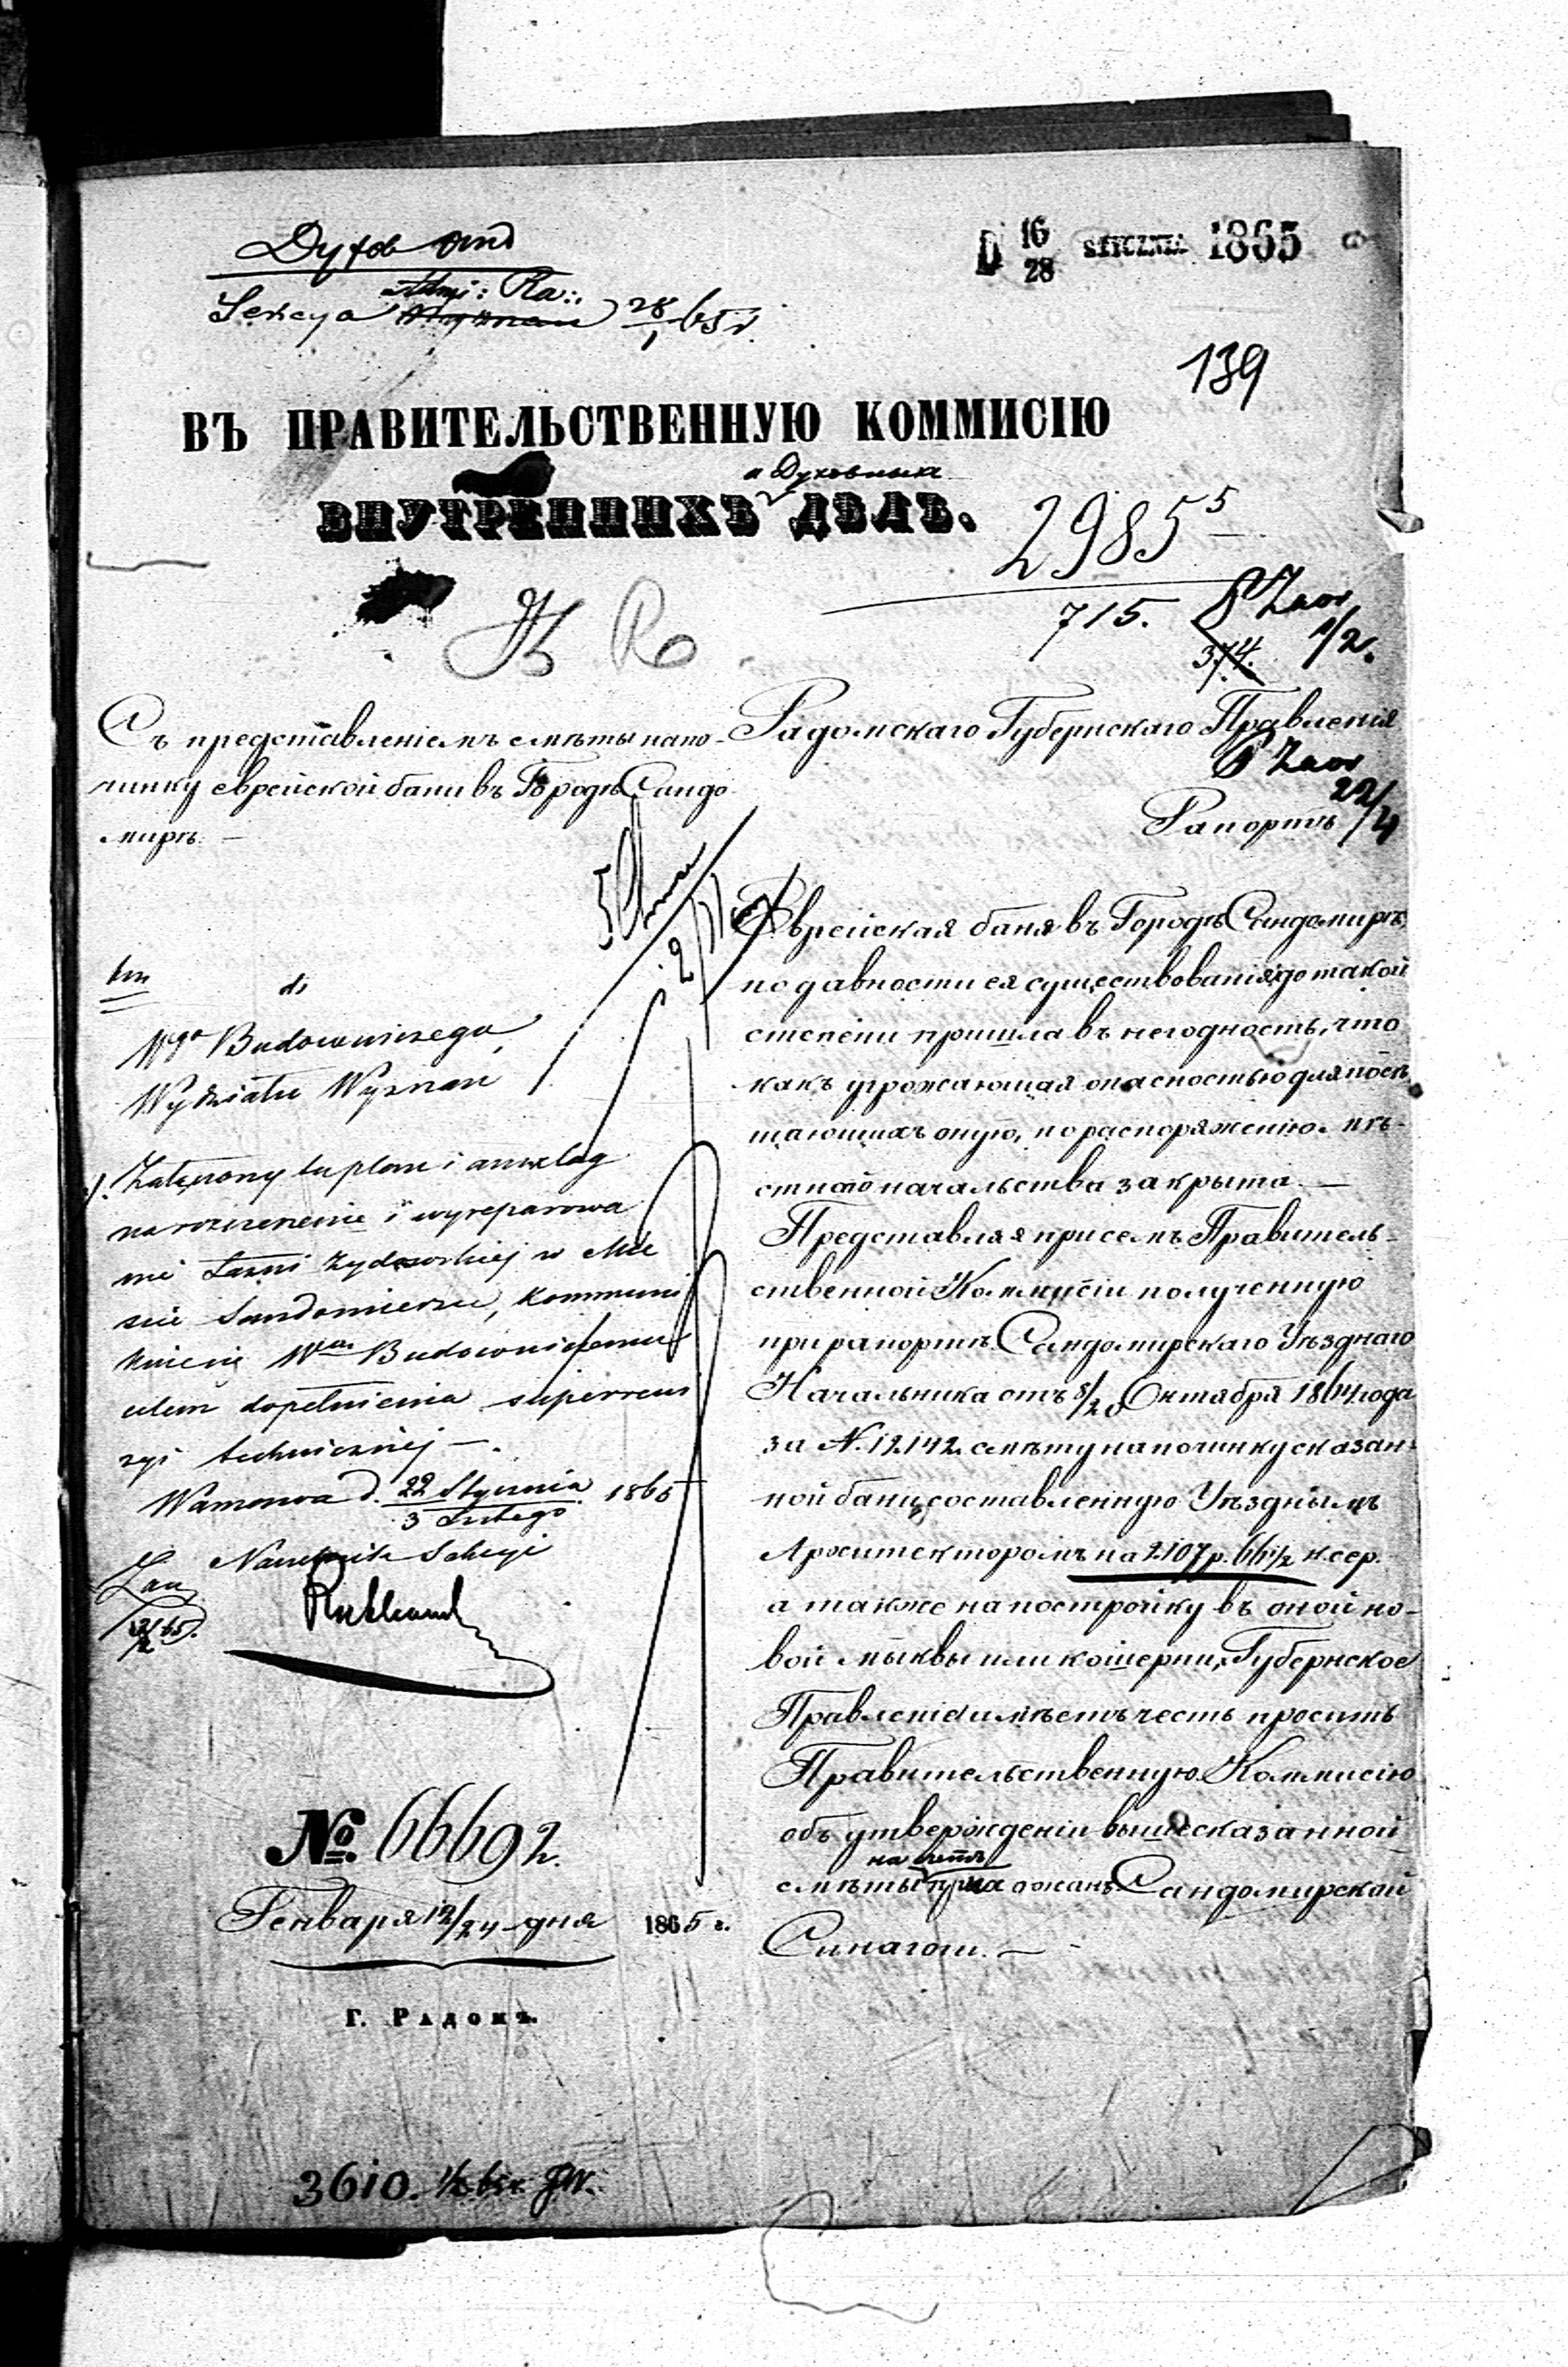 D 16/28 STYCZNIA 1865
Sekcya 28/1 65 r.
139
ВЪ ПРАВИТЕЛЬСТВЕННУЮ КОММИСІЮ
и Духовныхъ
ВНУТРЕННИХЪ ДѢЛЪ.
2985 5
715.
374.
1/2.
Съ представленіемъ смѣты на по-
чинку еврейской бани въ Городѣ Сандо-
мирѣ. —
Радомскаго Губернскаго Правленія
22/4
Рапортъ
Еврейская баня въ Городѣ Сандомирѣ,
по давности ея существованія, до такой
степени пришла въ негодность, что
какъ угрожающая опасностью для посѣ-
щающихъ оную, по распоряженію мѣ-
стнаго начальства закрыта. —
Представляя при семъ Правитель-
ственной Коммисіи полученную
при рапортѣ Сандомирскаго Уѣзднаго
Начальника отъ 8/20 Октября 1864 года
за N. 12142 смѣту на починку сказан-
ной бани, составленную Уѣзднымъ
Архитекторомъ на 2107 р. 66 1/2 к. сер.
а также на постройку въ оной но-
вой мыквы или кошерни, Губернское
Правленіе имѣетъ честь просить
Правительственную Коммисію
объ утвержденіи вышесказанной
на счетъ
смѣты прихожанъ Сандомирской
Синагоги. —
do
Wgo Budowniczego
Wydziału Wyznań
Załączony tu plan i anszlag
na rozszerzenie i wyreparowa
nie Łaźni żydowskiej w Mie
ście Sandomierzu, kommuni
kuje się Wmu Budowniczemu
celem dopełnienia superrewi
zyi technicznej —.
Warszawa d. 22 Stycznia / 3 Lutego 1865
Naczelnik Sekcyi
№. 66692.
Генваря 12/24 дня 1865 г.
Г. РАДОМЪ.
3610.